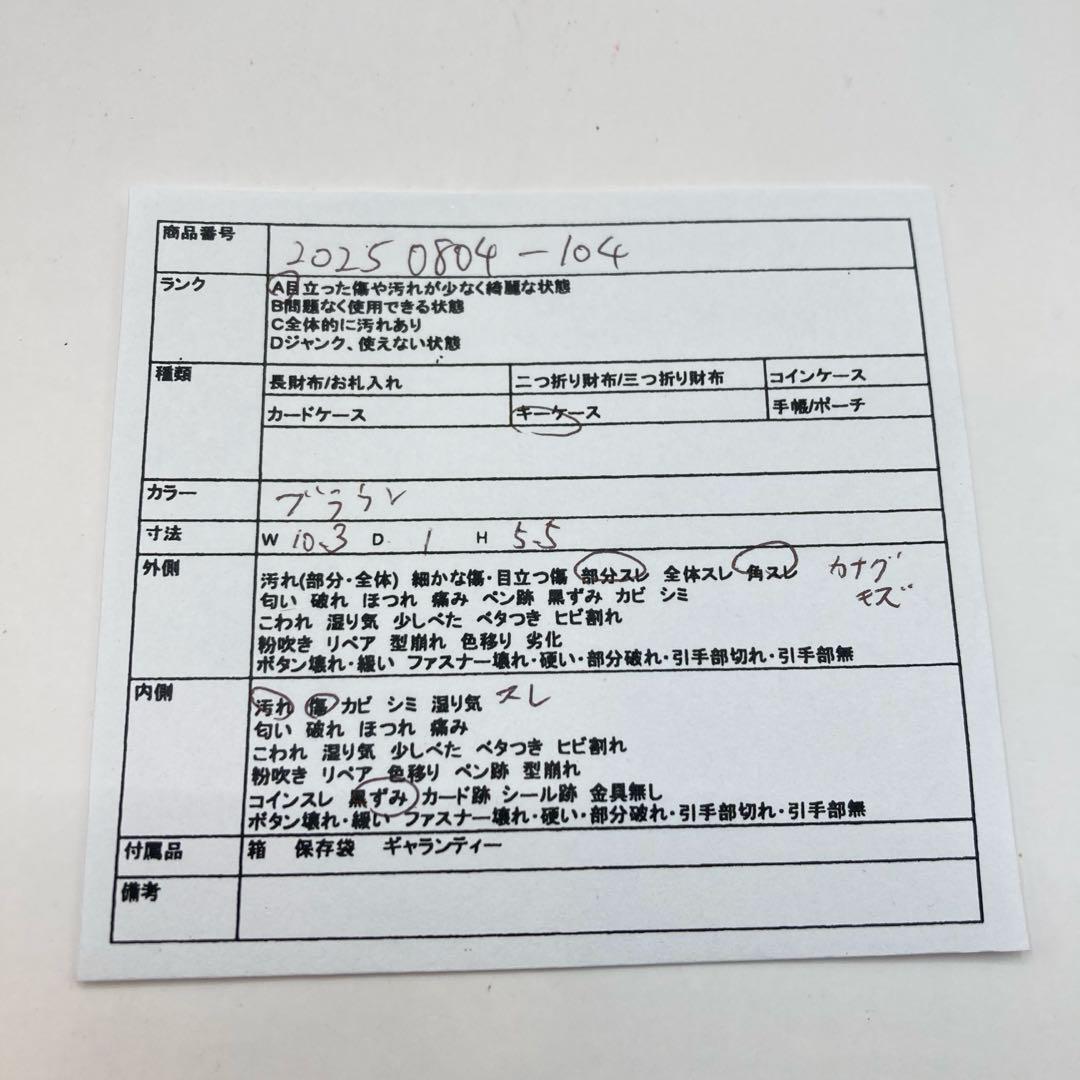 商品番号 20250804-104
ランク A目立った傷や汚れが少なく綺麗な状態
B問題なく使用できる状態
C全体的に汚れあり
Dジャンク、使えない状態
種類 長財布/お札入れ 二つ折り財布/三つ折り財布 コインケース
カードケース キーケース 手帳/ポーチ
カラー ブラウン
寸法 W 10.3 D 1 H 5.5
外側 汚れ(部分・全体) 細かな傷・目立つ傷 部分スレ 全体スレ 角スレ カナグ
匂い 破れ ほつれ 痛み ペン跡 黒ずみ カビ シミ キズ
こわれ 湿り気 少しべた ベタつき ヒビ割れ
粉吹き リペア 型崩れ 色移り 劣化
ボタン壊れ・緩い ファスナー壊れ・硬い・部分破れ・引手部切れ・引手部無
内側 汚れ 傷 カビ シミ 湿り気 スレ
匂い 破れ ほつれ 痛み
こわれ 湿り気 少しべた ベタつき ヒビ割れ
粉吹き リペア 色移り ペン跡 型崩れ
コインスレ 黒ずみ カード跡 シール跡 金具無し
ボタン壊れ・緩い ファスナー壊れ・硬い・部分破れ・引手部切れ・引手部無
付属品 箱 保存袋 ギャランティー
備考